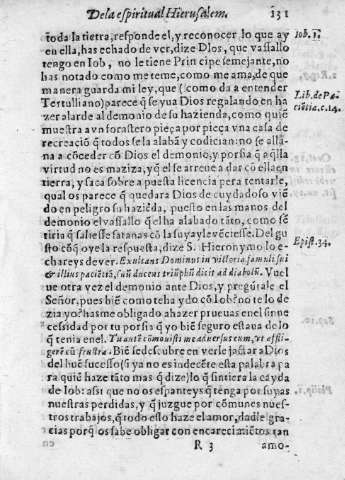 De la espiritual Hierusalem. 131
toda la tierra, responde el, y reconocer lo que ay
en ella, has echado de ver, dize Dios, que vassallo
tengo en Iob, no le tiene Principe semejante, no
has notado como me teme, como me ama, de que
manera guarda mi ley, que (como da a entender
Tertulliano) parece q̃ se yua Dios regalando en ha
zer alarde al demonio de su hazienda, como quiẽ
muestra a vn forastero pieça por pieça vna casa de
recreaciõ q̃ todos se la alabã y codician: no se allã-
na a cõceder cõ Dios el demonio, y porfia q̃ aq̃lla
virtud no es maziza, yq̃ el se atreue a dar cõ ella en
tierra, y saca sobre apuesta licencia pera tentarle,
qual os parece q̃ quedara Dios de cuydadoso viẽ
do en peligro su haziẽda, puesto en las manos del
demonio el vassallo q̃ el ha alabado tãto, como sẽ
tiria q̃ saliesse satanas cõ la suya y le vẽciesse. Del gu
sto cõq̃ oye la respuesta, dize S. Hieronymo lo e-
chareys de ver. Exultans Dominus in victoria famuli sui
& illius paciẽtiã, suũ ducens triũphũ dicit ad diabolũ. Vuel
ue otra vez el demonio ante Dios, y pregũtale el
Señor, pues biẽ como te ha ydo cõ Iob? no te lo de
zia yo? has me obligado a hazer prueuas en el sin ne
cessidad por tu porfia q̃ yo biẽ seguro estaua de lo
q̃ tenia en el. Tu autẽ cõmouisti me aduersus eum, vt affli-
gerẽ cũ frustra. Biẽ se descubre en verle jactar a Dios
del buẽ sucesso (si ya no es indecẽte esta palabra pa
ra quiẽ haze tãto mas q̃ dize) lo q̃ sintiera la cayda
de Iob: assi que no os espanteys q̃ tenga por suyas
nuestras perdidas, y q̃ juzgue por comunes nues-
tros trabajos, q̃ todo esto haze el amor, dadle gra-
cias porq̃ os sabe obligar con encarecimiẽtos tan
R 3 amo-
Iob. 1.
Lib. de Pa-
ciẽtia. c. 14.
Epist. 34.